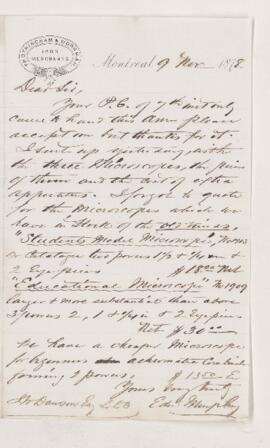 FROTHINGHAM & WORKMAN
IRON
MERCHANTS
Montreal 9 Nov 1878.
Dear Sir,
Your P.C. of 7th inst only
came to hand this a.m. please
accept my best thanks for it.
I sent up yesterday with
the three Microscopes, the price
of them and the list of extra
apparatus. I forgot to quote
for the Microscopes which we
have in Stock of the old kinds.
"Students Model Microscope,"
in Catalogue two powers 1 & 1/4 in &
2 Eye pieces $18.00 Nett
"Educational Microscope" No 1909
larger & more substantial than above
3 powers 2, 1 & 1/4 in & 2 Eye pieces
Nett $30.00
We have a cheaper Microscope
for beginners achromatic
forming 2 powers, $13.50
Yours very truly
Dr Dawson Esq LLD Edw Murphy